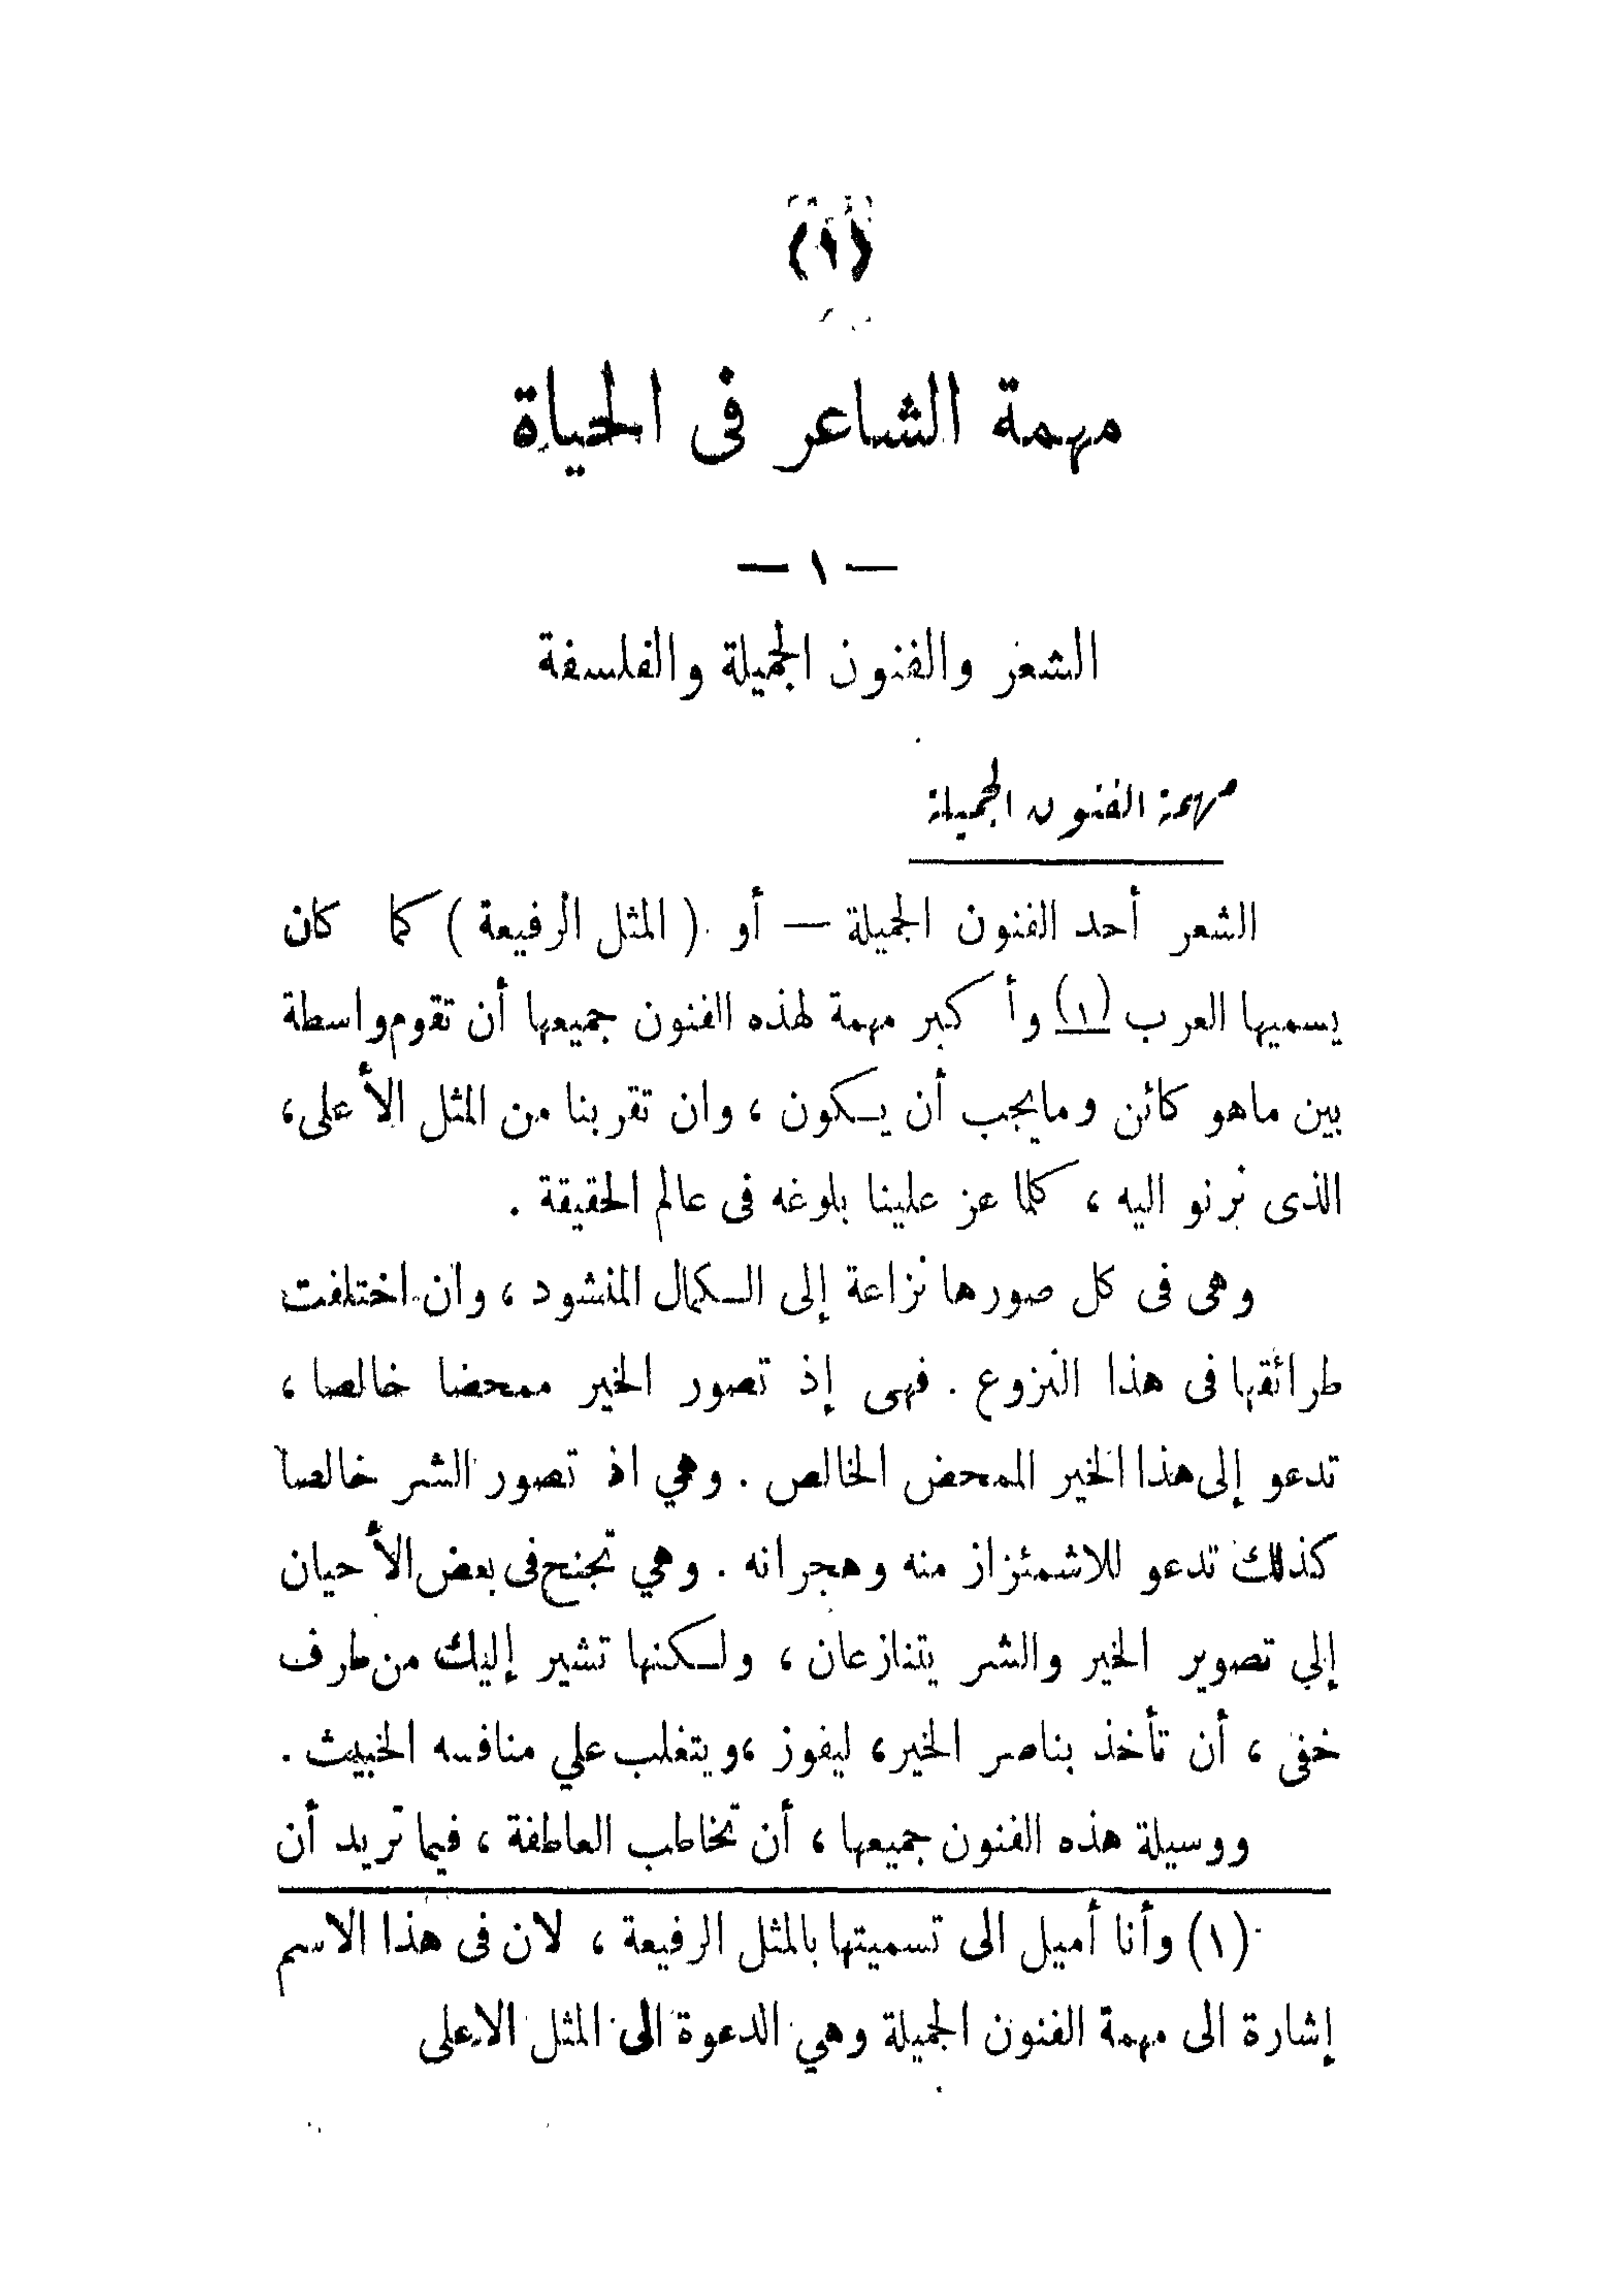 (١)
مهمة الشاعر فى الحياة
— ١ —
الشعر والفنون الجميلة والفلسفة
مهمة الفنون الجميلة
الشعر أحد الفنون الجميلة — أو ( المثل الرفيعة ) كما كان
يسميها العرب (١) وأكبر مهمة لهذه الفنون جميعها أن تقوم واسطة
بين ماهو كائن ومايجب أن يكون ، وان تقربنا من المثل الأعلى،
الذى نرنو اليه ، كلما عز علينا بلوغه فى عالم الحقيقة .
وهى فى كل صورها نزاعة إلى الكمال المنشود ، وان اختلفت
طرائقها فى هذا النزوع . فهى إذ تصور الخير ممحضا خالصا ،
تدعو إلى هذا الخير الممحض الخالص . وهي اذ تصور الشر خالصا
كذلك تدعو للاشمئزاز منه وهجرانه . وهي تجنح فى بعض الأحيان
إلي تصوير الخير والشر يتنازعان ، ولكنها تشير إليك من طرف
خفى ، أن تأخذ بناصر الخير، ليفوز ،ويتغلب علي منافسه الخبيث .
ووسيلة هذه الفنون جميعها ، أن تخاطب العاطفة ، فيما تريد أن
(١) وأنا أميل الى تسميتها بالمثل الرفيعة ، لان فى هذا الاسم
إشارة الى مهمة الفنون الجميلة وهي الدعوة الى المثل الاعلى